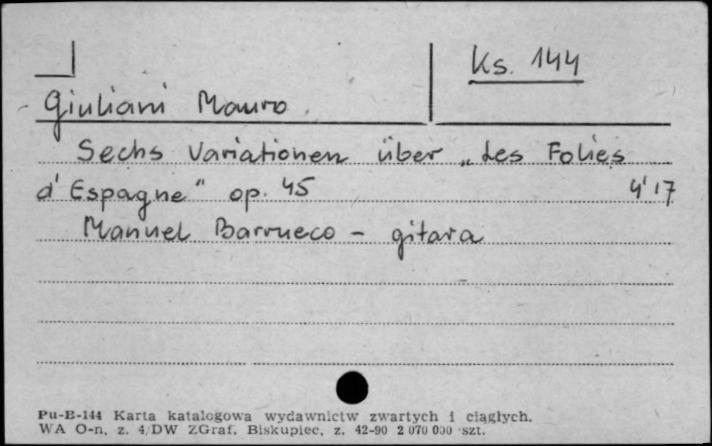 Ks. 144
Giuliani Mauro.
Sechs Variationen über „Les Folies
d'Espagne" op. 45 4'17
Manuel Barrueco - gitara
Pu-B-144 Karta katalogowa wydawnictw zwartych i ciągłych.
WA O-n, z. 4/DW ZGraf. Biskupiec, z. 42-90 2 070 000 szt.